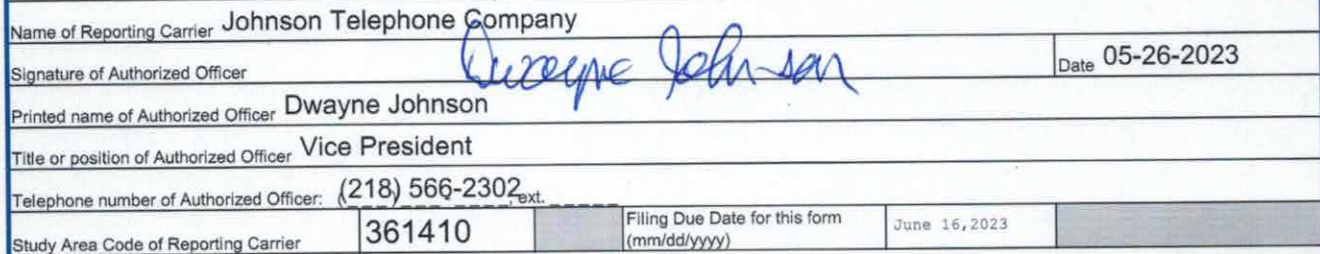 Name of Reporting Carrier Johnson Telephone Company
Signature of Authorized Officer Dwayne Johnson Date 05-26-2023
Printed name of Authorized Officer Dwayne Johnson
Title or position of Authorized Officer Vice President
Telephone number of Authorized Officer: (218) 566-2302, ext.
Study Area Code of Reporting Carrier 361410 Filing Due Date for this form (mm/dd/yyyy) June 16,2023